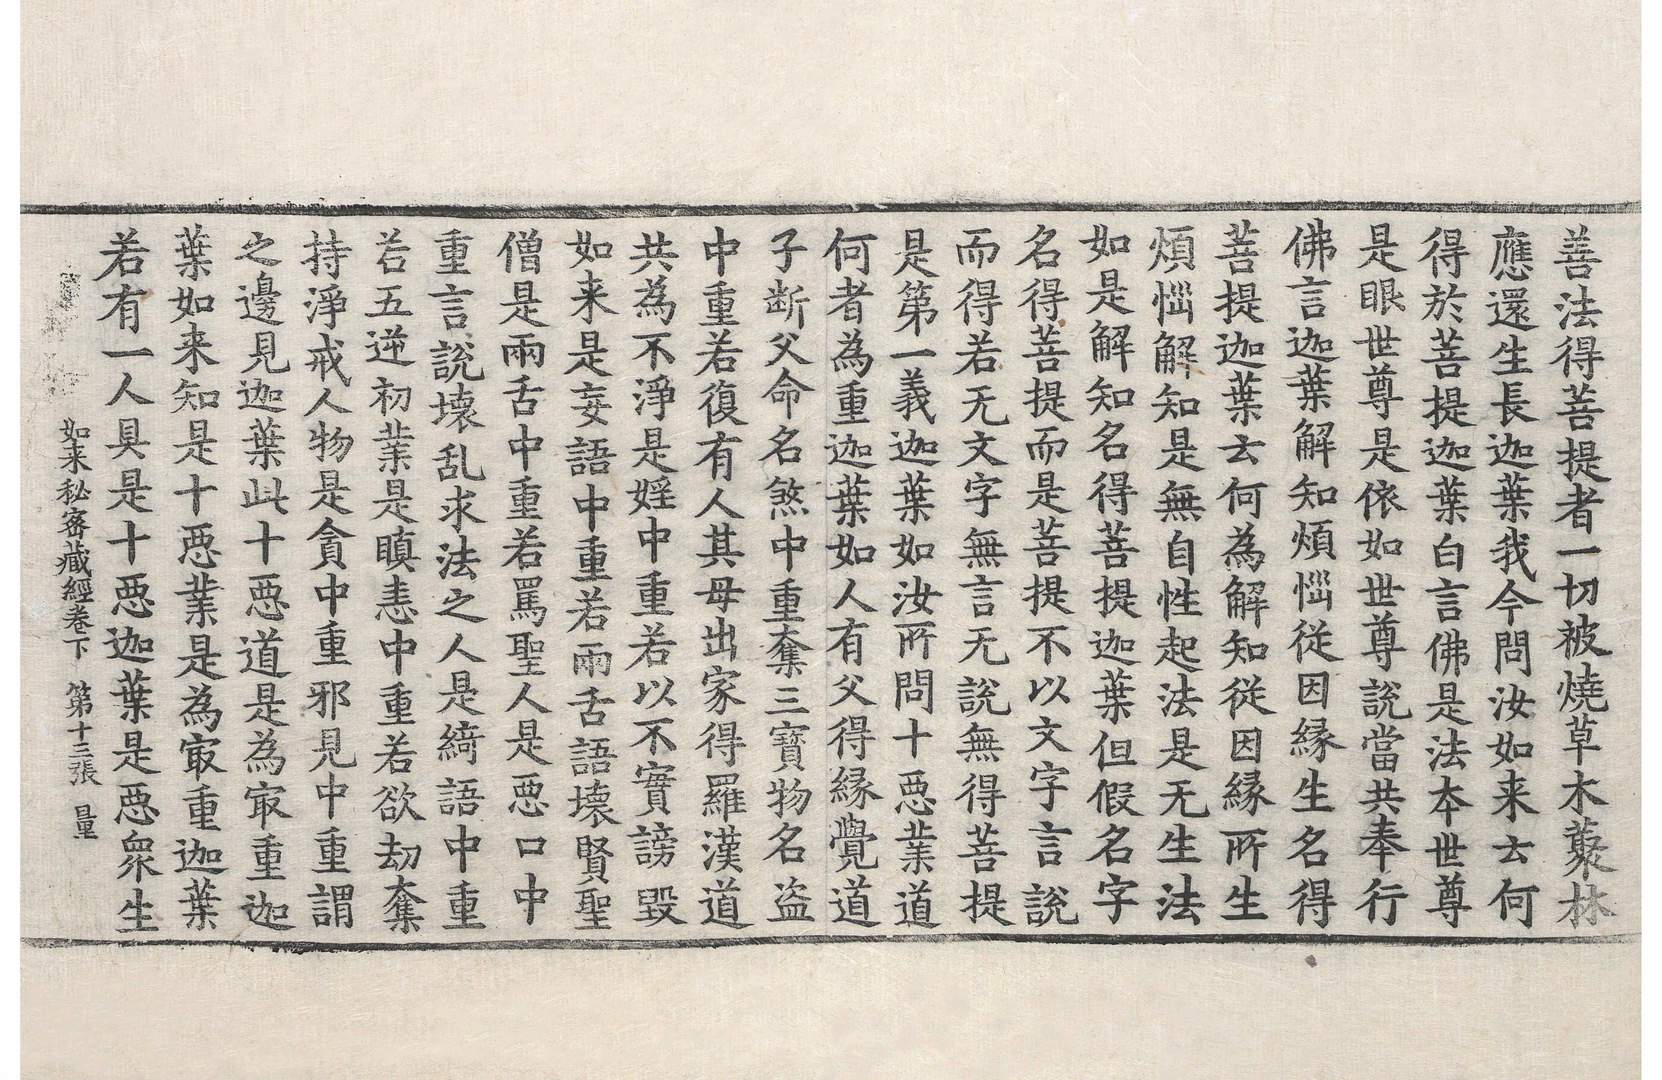 善法得菩提者一切被燒草木藂林
應還生長迦葉我今問汝如来云何
得於菩提迦葉白言佛是法夲世尊
是眼世尊是依如世尊說當共奉行
佛言迦葉解知煩惱從因縁生名得
菩提迦葉云何為解知從因縁所生
煩惱解知是無自性起法是无生法
如是解知名得菩提迦葉但假名字
名得菩提而是菩提不以文字言說
而得若无文字無言无說無得菩提
是第一義迦葉如汝所問十惡業道
何者為重迦葉如人有父得縁覺道
子断父命名煞中重奪三寶物名盜
中重若復有人其母出家得羅漢道
共為不淨是婬中重若以不實謗毀
如来是妄語中重若兩舌語壞賢聖
僧是兩舌中重若罵聖人是惡口中
重言說壞乱求法之人是綺語中重
若五逆初業是瞋恚中重若欲劫奪
持淨戒人物是貪中重邪見中重謂
之邊見迦葉此十惡道是為㝡重迦
葉如来知是十惡業是為㝡重迦葉
若有一人具是十惡迦葉是惡衆生
如来秘密藏經卷下 第十三張 量